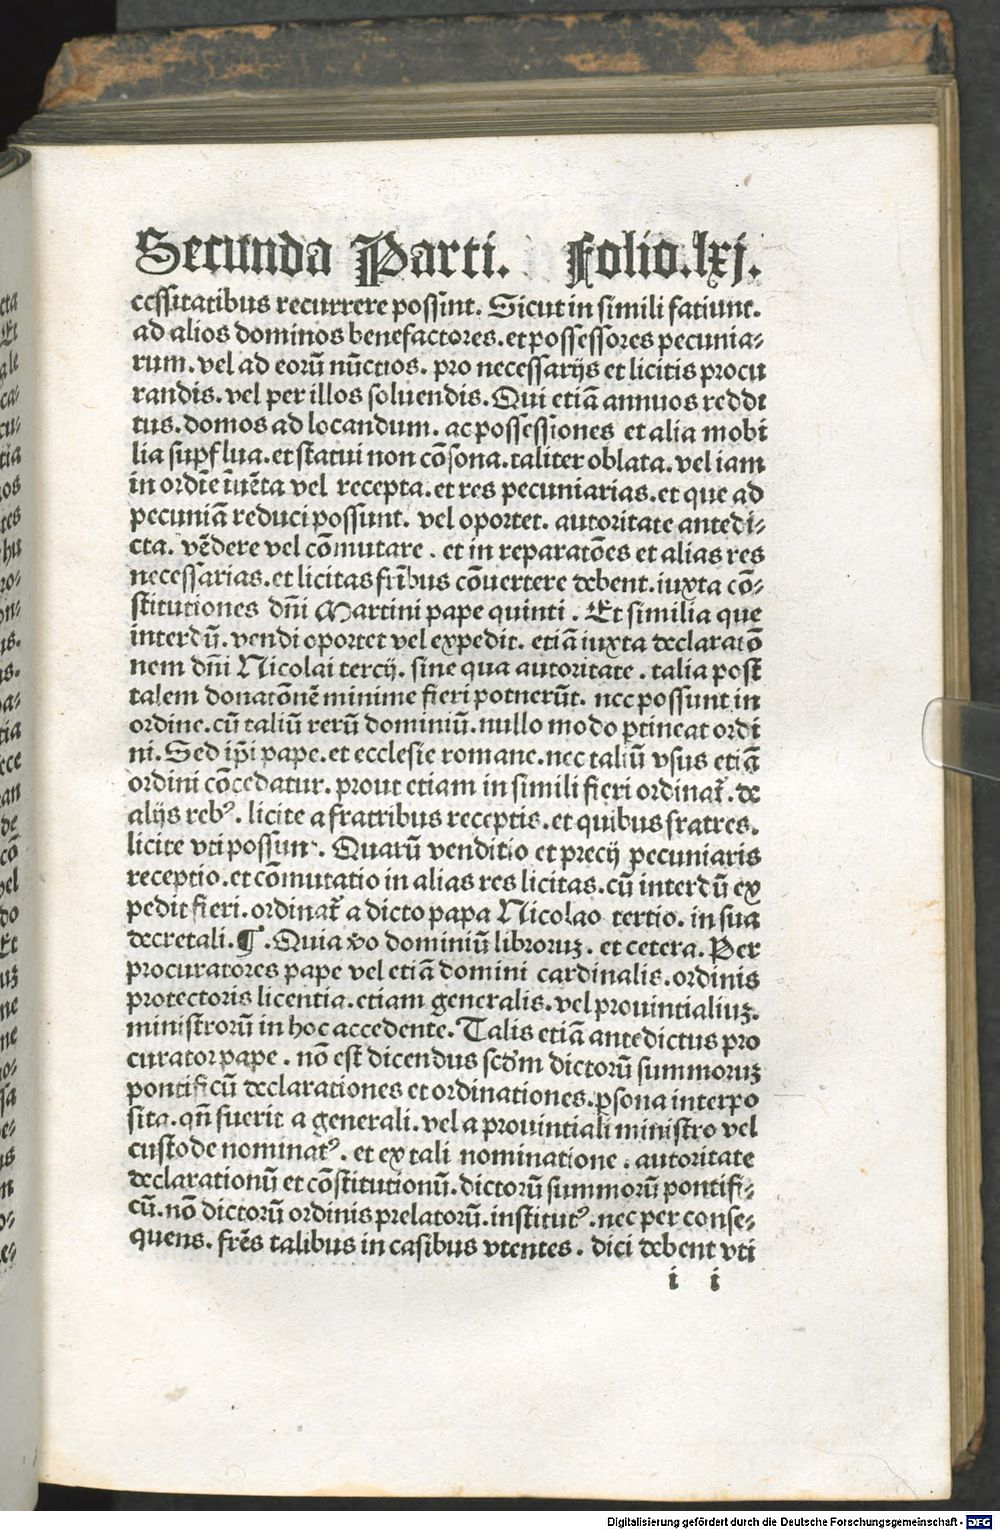 Secunda Parti. Folio.lxj.
cessitatibus recurrere possint. Sicut in simili fatiunt.
ad alios dominos benefactores. et possessores pecunia⸗
rum. vel ad eorū nūctios. pro necessarijs et licitis procu
randis. vel per illos soluendis. Qui etiā annuos reddi
tus. domos ad locandum. ac possessiones et alia mobi
lia supflua. et statui non cōsona. taliter oblata. vel iam
in ordīe īuēta vel recepta. et res pecuniarias. et que ad
pecuniā reduci possunt. vel oportet. autoritate antedi⸗
cta. vēdere vel cōmutare. et in reparatōes et alias res
necessarias. et licitas fr̄ibus cōuertere debent. iuxta cō⸗
stitutiones dn̄i Martini pape quinti. Et similia que
interdū. vendi oportet vel expedit. etiā iuxta declaratō
nem dn̄i Nicolai tercij. sine qua autoritate. talia post
talem donatōnē minime fieri potuerūt. nec possunt in
ordine. cū taliū rerū dominiū. nullo modo ptineat ordi
ni. Sed ip̄i pape. et ecclesie romane. nec taliū vsus etiā
ordini cōcedatur. prout etiam in simili fieri ordinat̄. de
alijs rebꝰ. licite a fratribus receptis. et quibus fratres.
licite vti possunt. Quarū venditio et precij pecuniaris
receptio. et cōmutatio in alias res licitas. cū interdū ex
pedit fieri. ordinat̄ a dicto papa Nicolao tertio. in sua
decretali. ¶. Quia v̄o dominiū libroruꝫ. et cetera. Per
procuratores pape vel etiā domini cardinalis. ordinis
protectoris licentia. etiam generalis. vel prouintialiuꝫ.
ministrorū in hoc accedente. Talis etiā antedictus pro
curator pape. nō est dicendus scd̄m dictorū summoruꝫ
pontificū declarationes et ordinationes. ꝑsona interpo
sita. qn̄ fuerit a generali. vel a prouintiali ministro vel
custode nominatꝰ. et ex tali nominatione. autoritate
declarationū et cōstitutionū. dictorū summorū pontifi⸗
cū. nō dictorū ordinis prelatorū. institutꝰ. nec per conse⸗
quens. fr̄es talibus in casibus vtentes. dici debent vti
i i
Digitalisierung gefördert durch die Deutsche Forschungsgemeinschaft - DFG